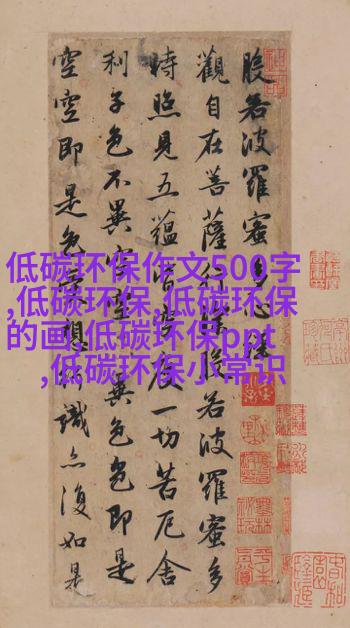 般若波羅蜜多心經
觀自在菩薩行深般若波羅蜜多
時照見五蘊皆空度一切苦厄舍
利子色不異空空不異色色即是
空空即是色受想行識亦復如是
低碳环保作文500字
,低碳环保,低碳环保
的画,低碳环保ppt
,低碳环保小常识